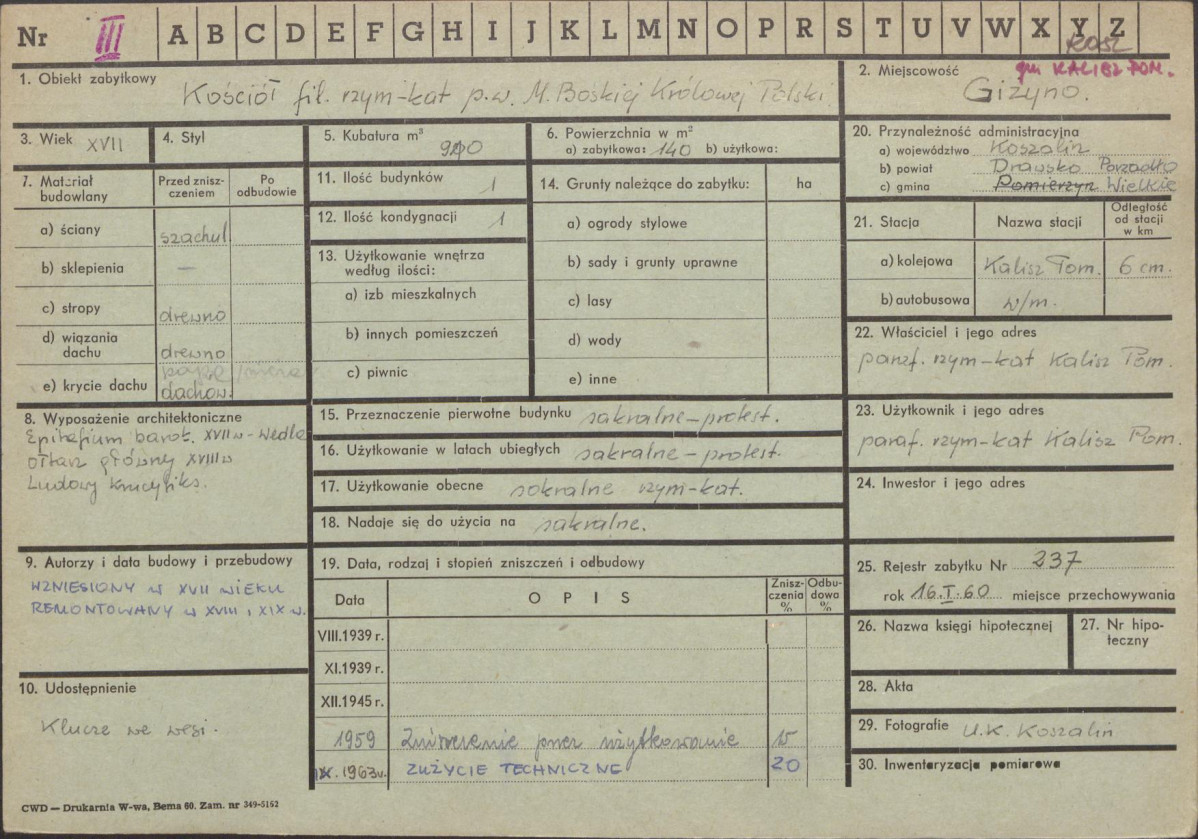 Nr III A B C D E F G H I J K L M N O P R S T U V W X Y Z
KOSZ
gm KALISZ POM.
1. Obiekt zabytkowy Kościół fil. rzym-kat p.w. M. Boskiej Królowej Polski
2. Miejscowość Giżyno.
3. Wiek XVII
4. Styl
5. Kubatura m³
6. Powierzchnia w m²
a) zabytkowa: 140 b) użytkowa:
7. Materiał budowlany
Przed zniszczeniem
Po odbudowie
a) ściany szachul
b) sklepienia —
c) stropy drewno
d) wiązania dachu drewno
e) krycie dachu dachow.
11. Ilość budynków 1
12. Ilość kondygnacji 1
13. Użytkowanie wnętrza według ilości:
a) izb mieszkalnych
b) innych pomieszczeń
c) piwnic
14. Grunty należące do zabytku: ha
a) ogrody stylowe
b) sady i grunty uprawne
c) lasy
d) wody
e) inne
20. Przynależność administracyjna
a) województwo Koszalin
b) powiat Drawsko Pom
c) gmina Pomierzyn Wielkie
21. Stacja
Nazwa stacji
Odległość od stacji w km
a) kolejowa Kalisz Pom. 6 cm.
b) autobusowa w/m.
22. Właściciel i jego adres
paraf. rzym-kat Kalisz Pom.
23. Użytkownik i jego adres
paraf. rzym-kat Kalisz Pom.
24. Inwestor i jego adres
8. Wyposażenie architektoniczne
Epitafium barok. XVII w - Wedla
ołtarz główny XVIII w
Ludowy krucyfiks.
15. Przeznaczenie pierwotne budynku sakralne-protest.
16. Użytkowanie w latach ubiegłych sakralne-protest.
17. Użytkowanie obecne sakralne rzym-kat.
18. Nadaje się do użycia na sakralne.
9. Autorzy i data budowy i przebudowy
WZNIESIONY W XVII WIEKU
REMONTOWANY W XVIII i XIX w.
10. Udostępnienie
Klucze we wsi.
19. Data, rodzaj i stopień zniszczeń i odbudowy
Data
OPIS
Zniszczenia %
Odbudowa %
VIII.1939 r.
XI.1939 r.
XII.1945 r.
1959 Zniszczenie przez użytkowanie
IX. 1963 r. ZUŻYCIE TECHNICZNE 20
25. Rejestr zabytku Nr 237
rok 16.I.60 miejsce przechowywania
26. Nazwa księgi hipotecznej
27. Nr hipoteczny
28. Akta
29. Fotografie U.K. Koszalin
30. Inwentaryzacja pomiarowa
CWD — Drukarnia W-wa, Bema 60. Zam. nr 349-5162